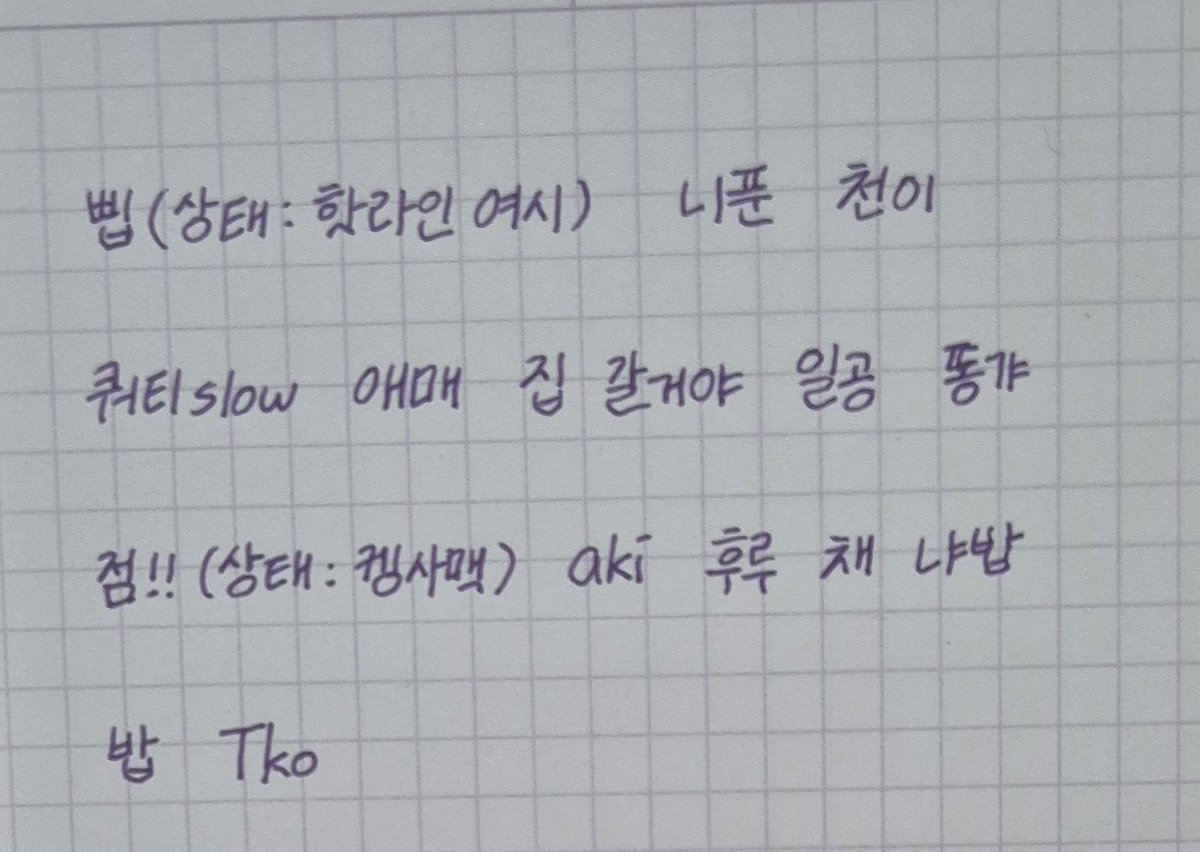 삡(상태: 핫라인 여시) 니푼 천이
쿼티slow 애매 집 갈거야 일공 똥갸
점!!(상태: 켕사맥) aki 후루 채 냐밥
밥 Tko